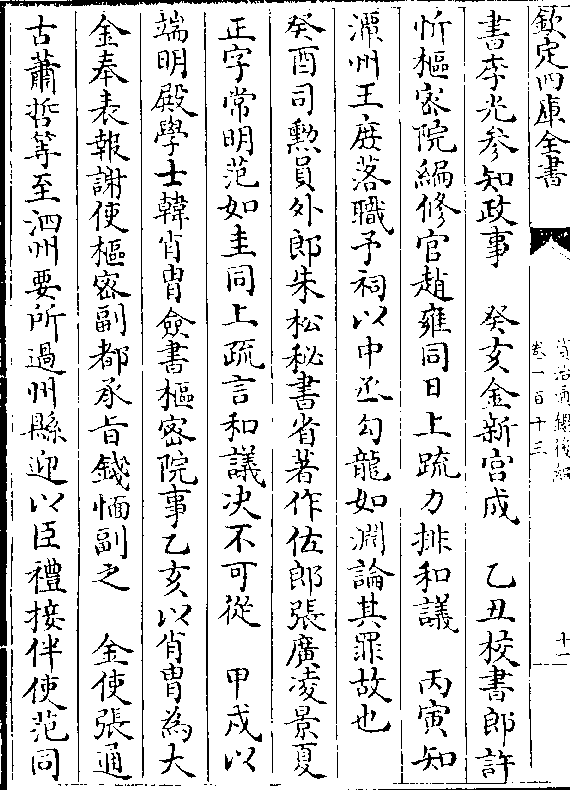 欽定四庫全書
資治通鑑後編
卷一百十三
十一
書李光參知政事　癸亥金新宫成　乙丑校書郎許
忻樞宻院編修官趙雍同日上疏力排和議　丙寅知
潭州王庶落職予祠以中丞勾龍如淵論其罪故也
癸酉司勲員外郎朱松秘書省著作佐郎張廣凌景夏
正字常明范如圭同上疏言和議决不可從　甲戌以
端明殿學士韓肖胄僉書樞宻院事乙亥以肖胄為大
金奉表報謝使樞宻副都承旨錢愐副之　金使張通
古蕭哲等至泗州要所過州縣迎以臣禮接伴使范同